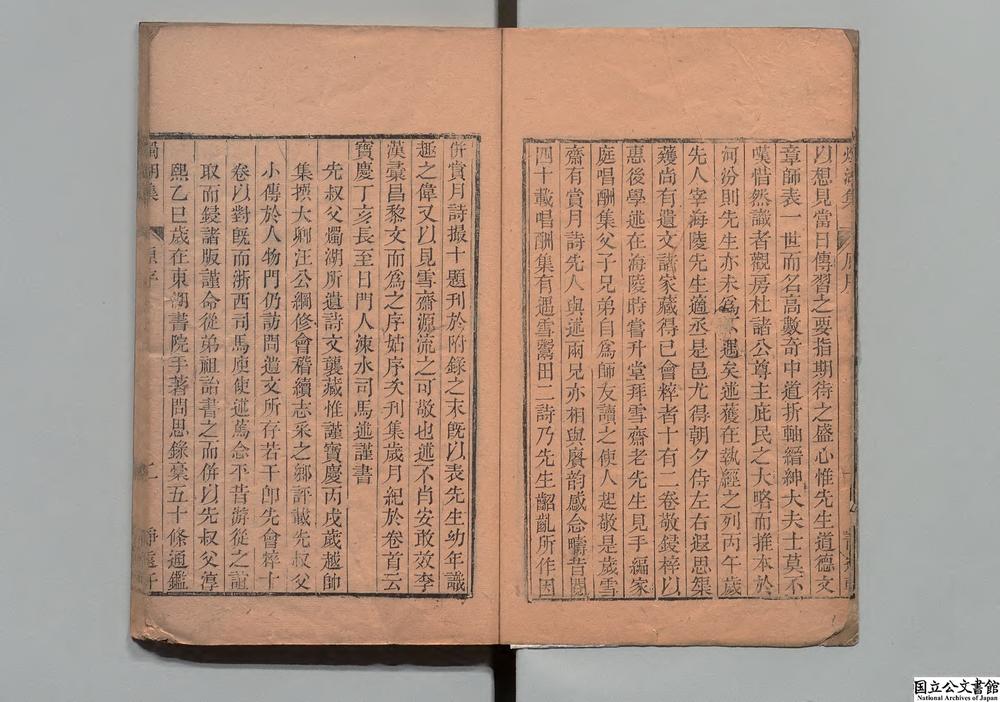 燭湖集 原序
以想見當日傳習之要指期待之盛心惟先生道德文
章師表一世而名高數奇中道折軸縉紳大夫士莫不
嘆惜然識者觀房杜諸公尊主庇民之大略而推本於
河汾則先生亦未爲不遇矣述蚤在執經之列丙午歲
先人宰海陵先生適丞是邑尤得朝夕侍左右遐思榘
蒦尚有遺文諸家藏得已會粹者十有二卷敬鋟梓以
惠後學述在海陵時嘗升堂拜雪齋老先生見手編家
庭唱酬集父子兄弟自爲師友讀之使人起敬是歲雪
齋有賞月詩先人與述兩兄亦相與賡韵感念疇昔閱
四十載唱酬集有遇雪鬻田二詩乃先生齠齔所作因
併賞月詩撮十題刊於附錄之末既以表先生幼年識
趣之偉又以見雪齋源流之可敬也述不肖安敢效李
漢彚昌黎文而爲之序姑序夫刊集歲月紀於卷首云
寶慶丁亥長至日門人涑水司馬述謹書
先叔父燭湖所遺詩文襲藏惟謹寶慶丙戌歲越帥
集撰大卿汪公綱修會稽續志采之鄉評載先叔父
小傳於人物門仍訪問遺文所存若干即先會粹十
卷以對既而浙西司馬庾使述篤念平昔游從之誼
取而鋟諸版謹命從弟祖詒書之而併以先叔父淳
熙乙巳歲在東湖書院手著問思錄槀五十條通鑑
燭湖集 原序 二 靜遠軒